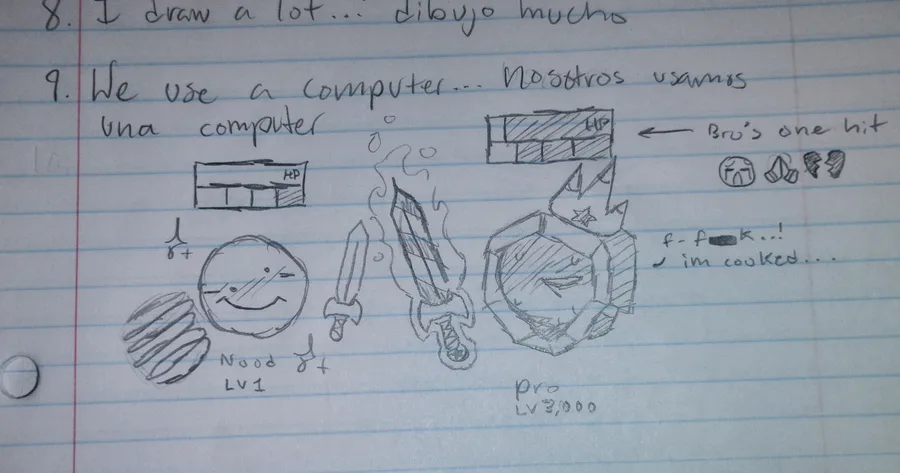 8. I draw a lot... dibujo mucho
9. We use a computer... nosotros usamos
una computer
HP
HP
Bro's one hit
f-f k..!
im cooked...
Nood
LV1
pro
LV3,000